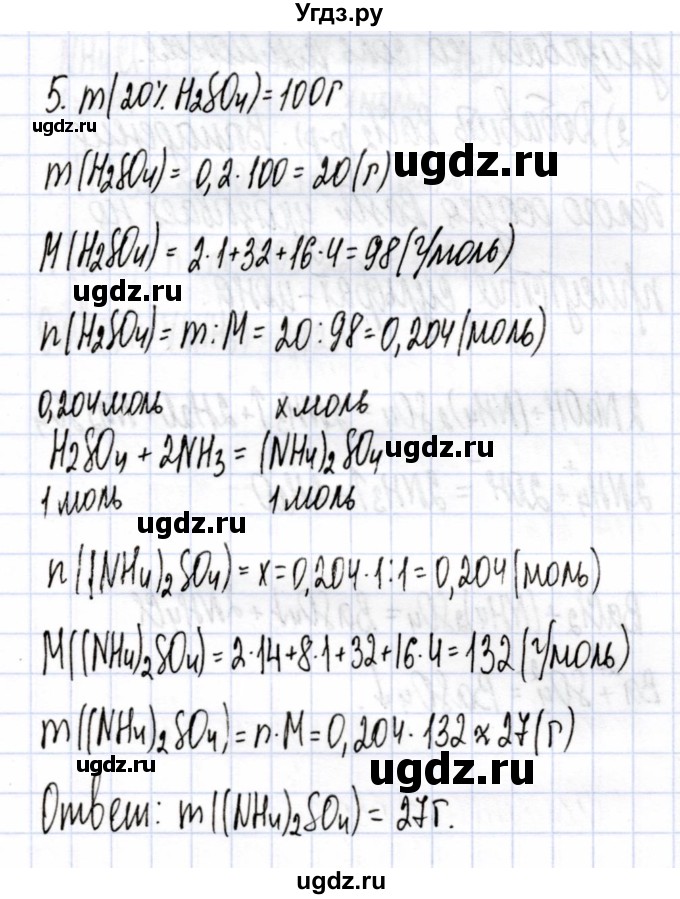 Угдз.ру
5. m(20% H2SO4) = 100г
ugdz.ru
m(H2SO4) = 0,2·100 = 20(г)
ugdz.ru
M(H2SO4) = 2·1+32+16·4 = 98(г/моль)
ugdz.ru
n(H2SO4) = m:M = 20:98 = 0,204(моль)
0,204моль x моль
H2SO4 + 2NH3 = (NH4)2SO4
ugdz.ru
1 моль 1 моль
ugdz.ru
n((NH4)2SO4) = x = 0,204·1:1 = 0,204(моль)
M((NH4)2SO4) = 2·14+8·1+32+16·4 = 132(г/моль)
m((NH4)2SO4) = n·M = 0,204·132 ≈ 27(г)
ugdz.ru
ugdz.ru
Ответ: m((NH4)2SO4) = 27г.
ugdz.ru